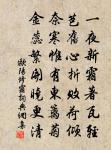 一夜新霜著瓦輕
芭蕉心折敗荷傾
奈寒惟有東籬菊
金蕊繁開曉更清
歐陽修霜詞典網集